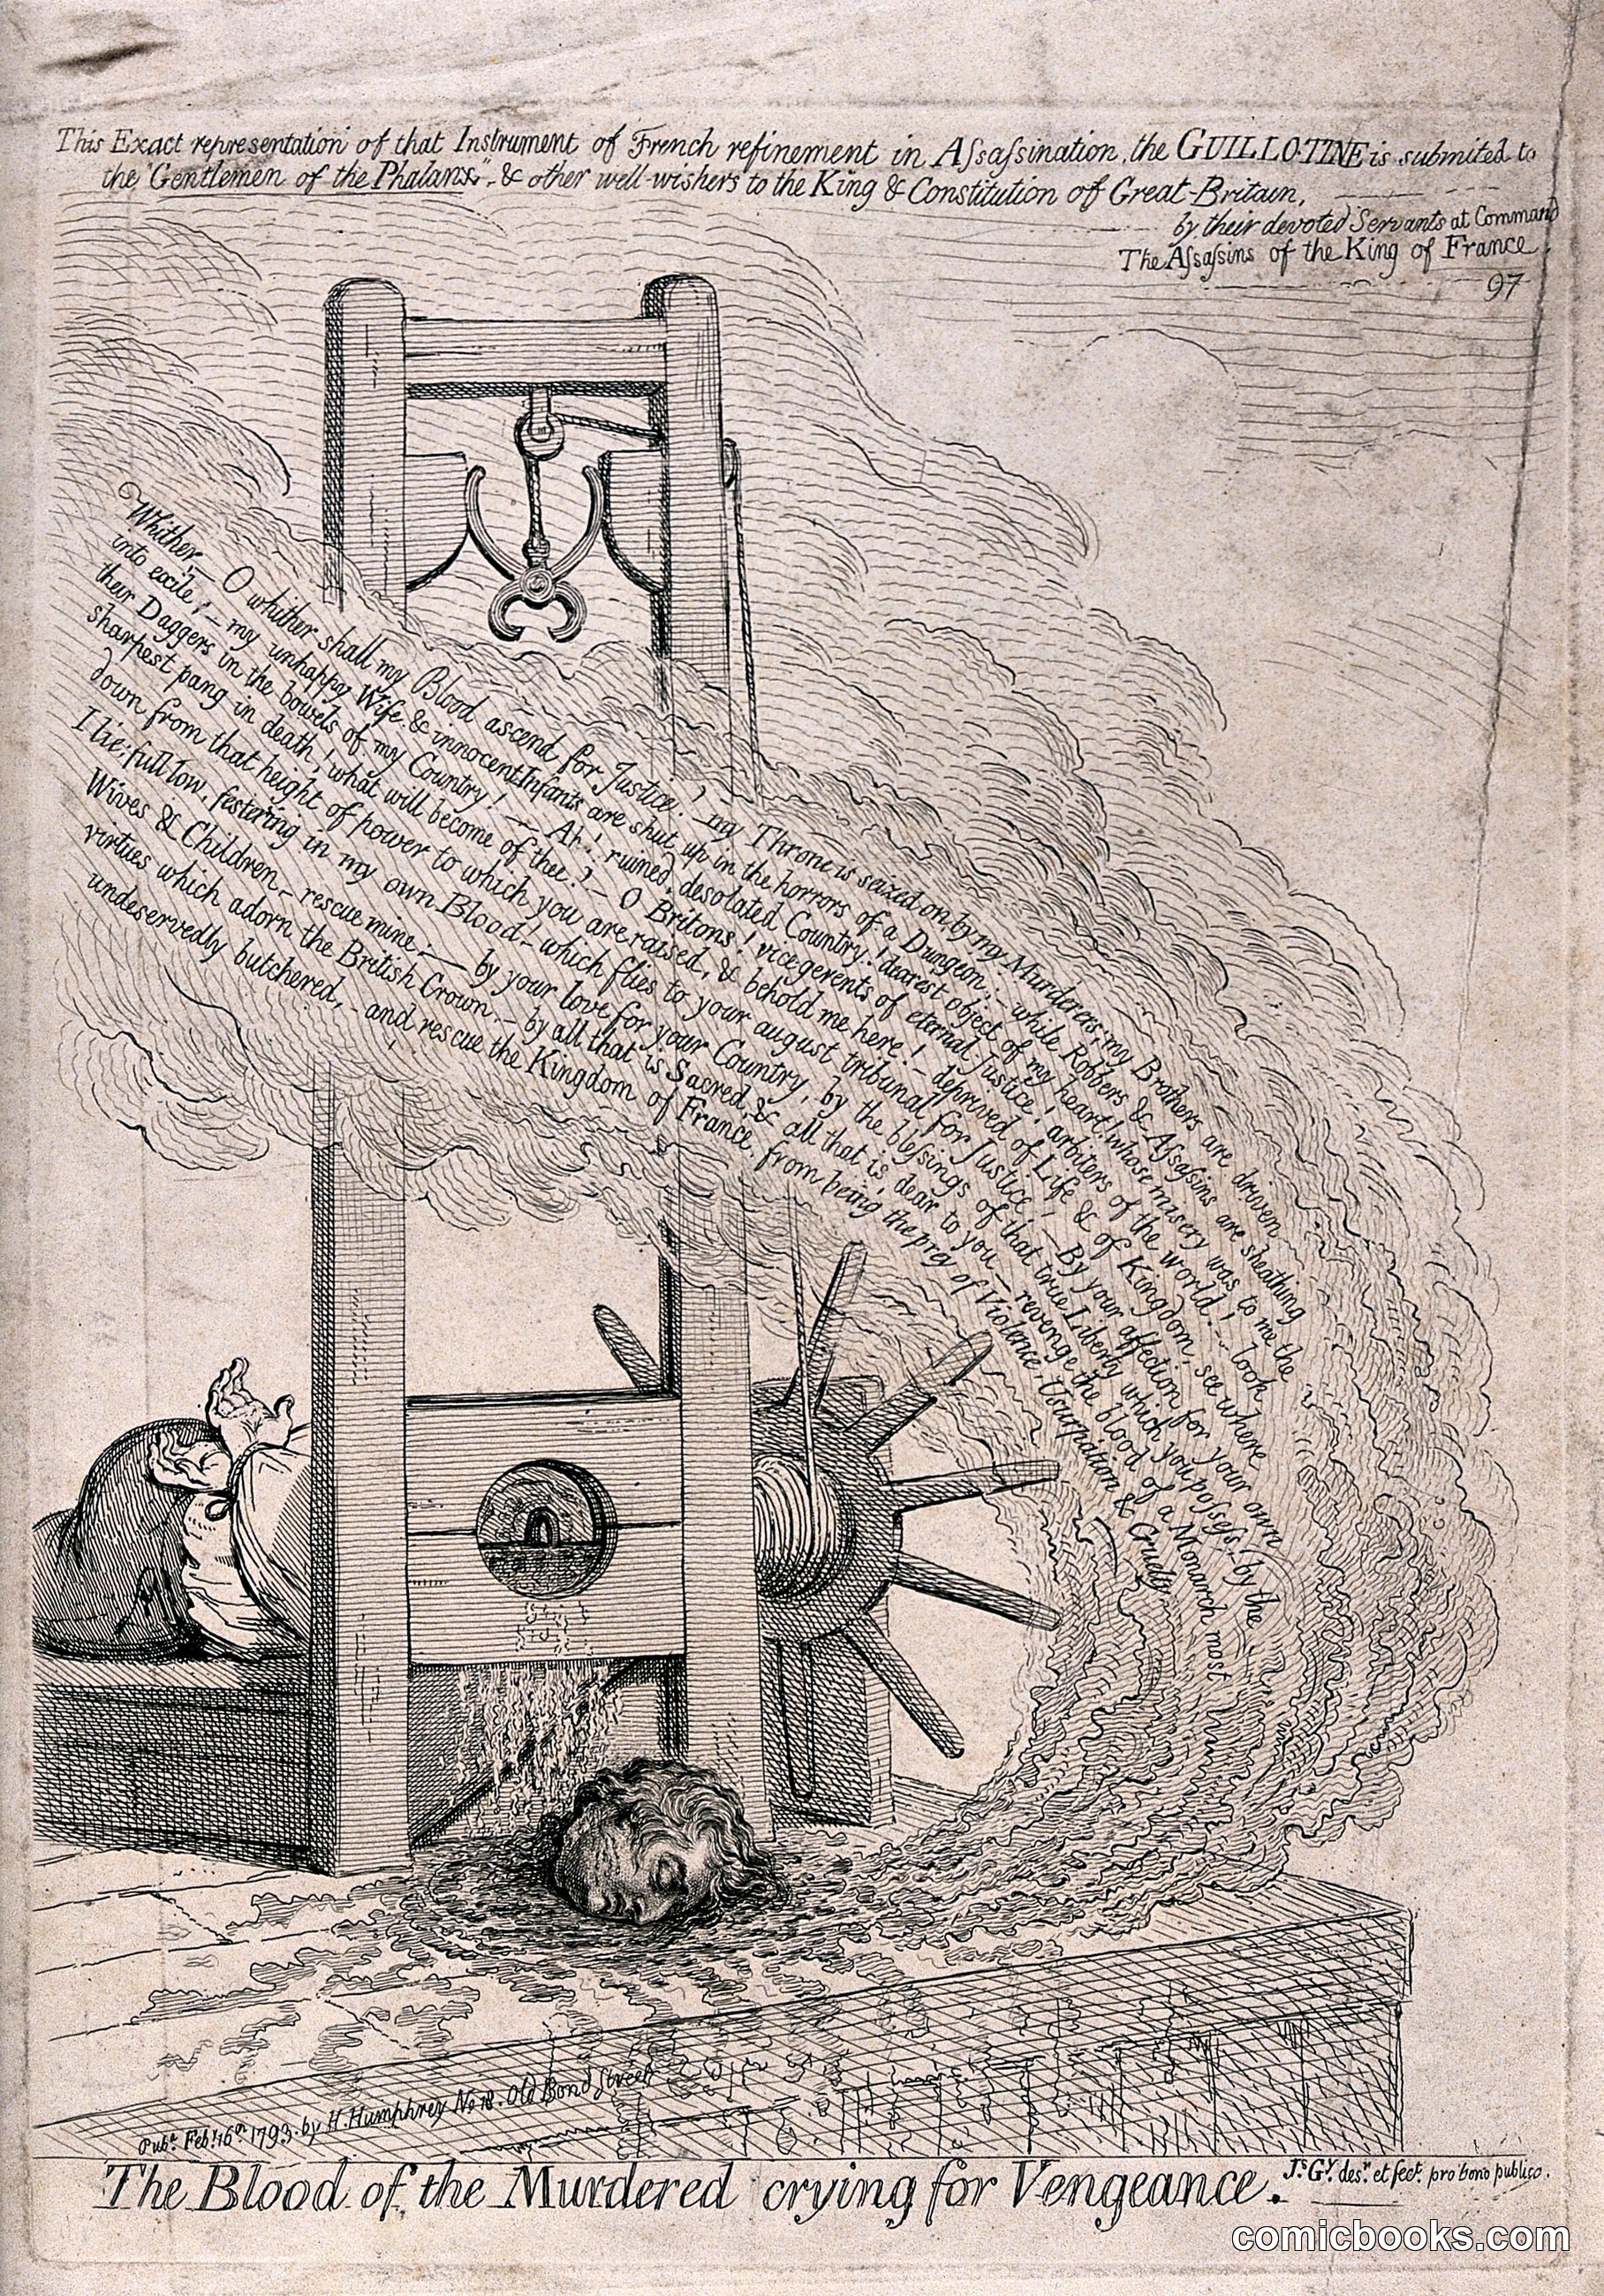 This Exact representation of that Instrument of French refinement in Aſsaſsination, the GUILLOTINE is submited to
the "Gentlemen of the Phalanx," - & other well-wishers to the King & Constitution of Great-Britain,
by their devoted Servants at Command
The Aſsaſsins of the King of France.
97
Whither, - O whither shall my Blood ascend for Justice? - my Throne is seized on, by my Murderers; my Brothers are driven
into exile; - my unhappy Wife & innocent Infants are shut up in the horrors of a Dungeon; - while Robbers & Aſsaſsins are sheathing
their Daggers in the bowels of my Country! - Ah! ruined, desolated Country! dearest object of my heart! whose misery was to me the
sharpest pang in death! what will become of thee? - O Britons! vicegerents of eternal Justice! arbiters of the world! - look
down from that height of power to which you are raised, & behold me here! - deprived of Life & of Kingdom, see where
I lie; full low, festering in my own Blood! which flies to your august tribunal for Justice! - By your affection for your own
Wives & Children - rescue mine: - by your love for your Country, by the bleſsings of that true Liberty which you poſseſs, by the
virtues which adorn the British Crown, - by all that is Sacred, & all that is dear to you - revenge the blood of a Monarch most
undeservedly butchered, - and rescue the Kingdom of France, from being the prey of Violence, Usurpation & Cruelty.
Pubd. Feby. 16th. 1793. by H. Humphrey No 18. Old Bond Street
The Blood of the Murdered crying for Vengeance.
Js. Gy. desn. et fect. pro bono publico.
comicbooks.com